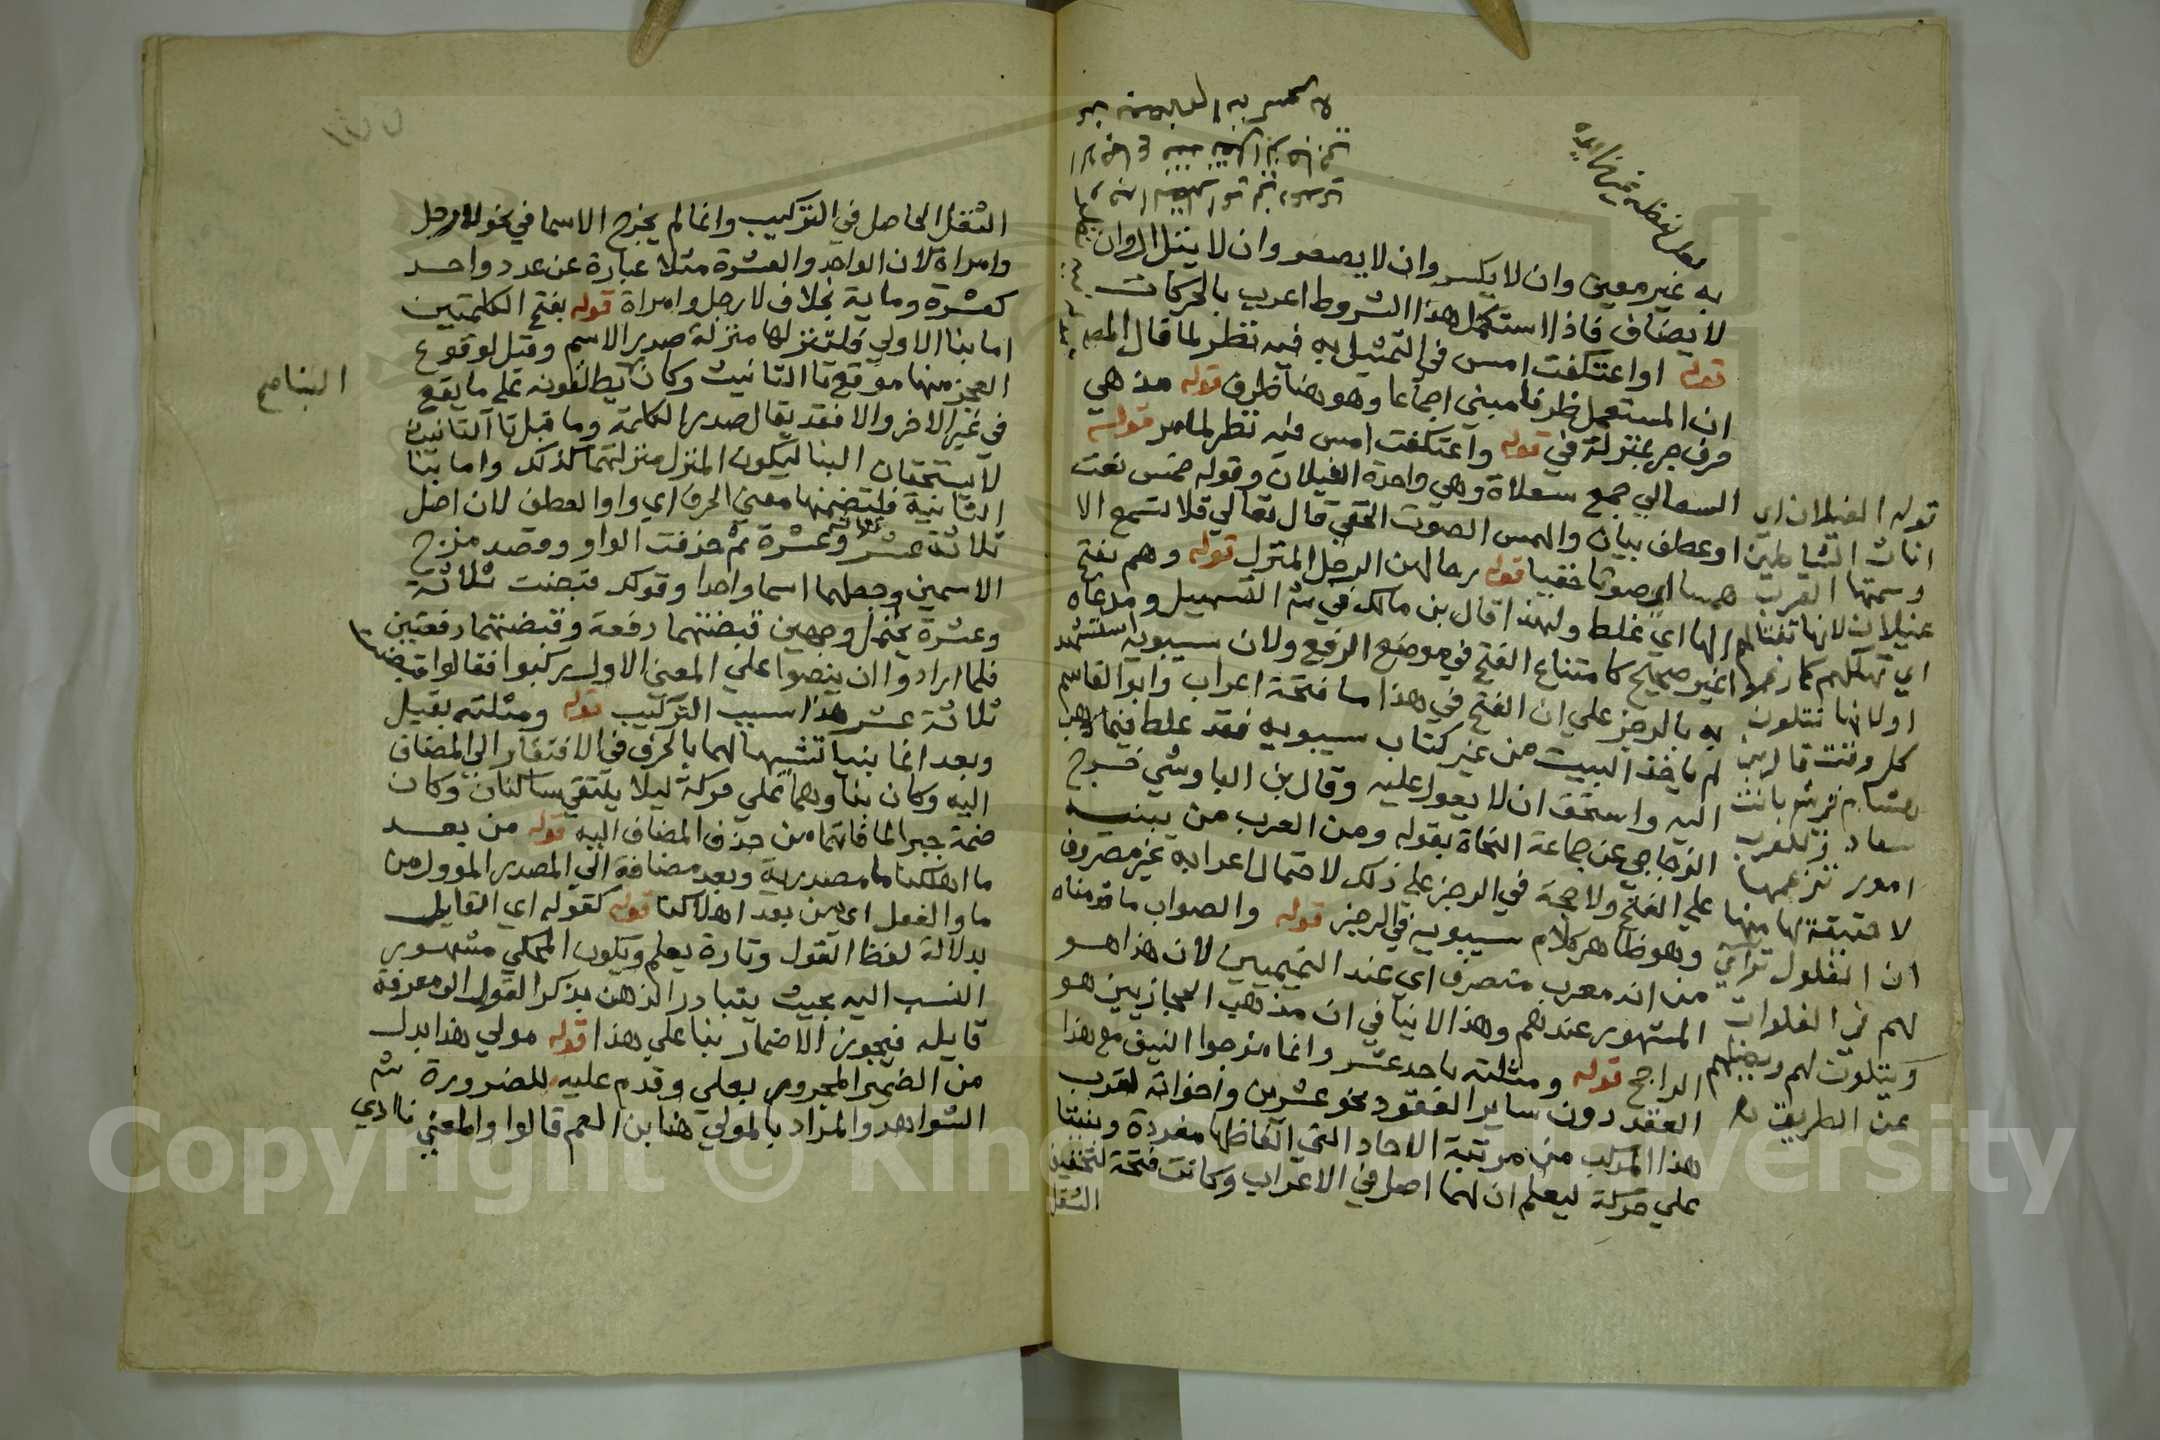 به غير معين وان لا يكسر وان لا يصغر وان لا ينزل ال وان
لا يضاف فاذا استكمل هذا الشروط اعرب بالحركات
قوله او اعتكفت امس في التمثيل به فيه نظر لما قال المص
ان المستعمل ظرفا مبني اجماعا وهو هنا ظرف قوله مذ هي
حرف جر بمنزلة في قوله واعتكفت امس فيه نظر لما مر قوله
السعالي جمع سعلاة وهي واحدة الغيلان وقوله خمس نعت
او عطف بيان والهمس الصوت الخفي قال تعالى فلا تسمع الا
همسا اي صوتا خفيا قوله رحالهن الرحل المنزل قوله وهم نفتح
لها اي غلط ولهذا قال بن مالك في شر التسهيل ومدعاه
غير صحيح كامتناع الفتح في موضع الرفع ولان سيبويه استشهد
به بالرجز علي ان الفتح في هذا ما فتحة اعراب وابو القاسم
لم ياخذ البيت من غير كتاب سيبويه فقد غلط فيما ذهب
اليه واستحق ان لا يعول عليه وقال بن الباوشي خرج
الزجاجي عن جماعة النحاة بقوله ومن العرب من يبنيه
علي الفتح ولا حجة في الرجز علي ذلك لاحتمال اعرابه غير مصروف
وهو ظاهر كلام سيبويه في الرجز قوله والصواب ما قدمناه
من انه معرب متصرف اي عند التميميين لان هذا هو
المشهور عندهم وهذا لا ينافي ان مذهب الحجازيين هو
الراجح قوله ومثلته باحد عشر وانما مزجوا النيف مع هذا
العقد دون ساير العقود نحو عشرين واخواته لقرب
هذا المركب من مرتبة الاحاد التي الفاظها مفردة وبنيتا
علي حركة ليعلم ان لهما اصل في الاعراب وكانت فتحة لتخفيف
الثقل
قوله الغيلان اي
اناث الشياطين
وسمتها العرب
غيلان لانها تغتالهم
اي تهلكهم كما زعموا
اولانها تتلون
كل وقت قال بن
هشام في شر بانت
سعاد وللعرب
امور تزعمها
لا حقيقة لها منها
ان الغول تتراي
لهم في الفلوات
وتتلون لهم وتضلهم
عن الطريق ه
الثقل الحاصل في التركيب وانما لم يخرج الاسما في نحو لا رجل
وامراة لان الواحد والعشرة مثلا عبارة عن عدد واحد
كعشرة وماية بخلاف لا رجل وامراة قوله بفتح الكلمتين
اما بنا الاولي فلتنزلها منزلة صدر الاسم وقيل لوقوع
العجز منها موقع تا التانيث وكان يطلقونه علي ما يقع
في غير الاخر والا فقد يقال صدر الكلمة وما قبل تا التانيث
لا يستحقان البنا ليكون المنزل منزلتهما كذلك واما بنا
الثانية فلتضمنها معني الحرف اي واو العطف لان اصل
ثلاثة عشر ثلاثة وعشرة ثم حذفت الواو وقصد مزج
الاسمين وجعلهما اسما واحدا وقولك قبضت ثلاثة
وعشرة يحتمل وجهين قبضتهما دفعة وقبضتهما دفعتين
فلما ارادوا ان ينصوا علي المعني الاول ركبوا فقالوا قبضت
ثلاثة عشر هذا سبب التركيب قوله ومثلته بقبل
وبعد انما بنيا تشبيها لهما بالحرف في الافتقار الي المضاف
اليه وكان بناوهما علي حركة ليلا يلتقي ساكنان وكان
ضمة جبرا لما فاتهما من حذف المضاف اليه قوله من بعد
ما اهلكنا ما مصدرية وبعد مضافة الي المصدر الموول من
ما والفعل اي من بعد اهلاكنا قوله كقوله اي القايل
بدلالة لفظ القول وتارة يعلم ويكون المحكي مشهور
النسب اليه بحيث يتبادر الذهن بذكر القول الي معرفة
قايله فيجوز الاضمار بنا علي هذا قوله مولي هذا بدل
من الضمير المجرور بعلي وقدم عليه للضرورة شر
الشواهد والمراد بالمولي هنا بن العم قالوا والمعني نادي
البنا صح